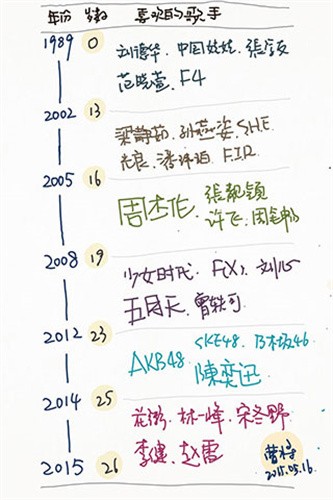 年份 年龄 喜欢的歌手
1989 0
刘德华、中国娃娃、張学友
范晓萱、F4
2002 13
梁静茹、孙燕姿、SHE
光良、潘玮柏、F.I.R.
2005 16
周杰伦、張靓颖
许飞、周笔畅
2008 19
少女时代、F(X)、刘
五月天、曾轶可
2012 23
SKE48、乃木坂46
AKB48
陳奕迅
2014 25
花粥、林一峰、宋冬野
李健、赵雷
2015 26
曹将
2015.05.16